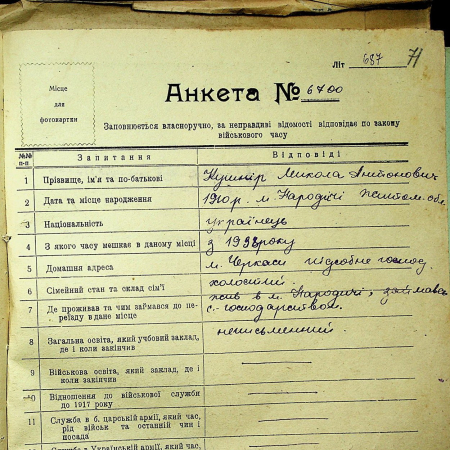 Літ 687 71
Місце
для
фотокартки
Анкета № 6700
Заповнюється власноручно, за неправдиві відомості відповідає по закону
військового часу
№№
п-п
Запитання
Відповіді
1 Прізвище, ім'я та по-батькові Кушнір Микола Антонович
2 Дата та місце народження 1910 р. м. Народічі Житом. обл
3 Національність українець
4 З якого часу мешкає в даному місці з 1938 року
5 Домашня адреса м. Черкаси підсобне господ.
6 Сімейний стан та склад сім'ї холостий
7 Де проживав та чим займався до пе-
реїзду в дане місце
жив в м. Народичі, займався
с.-господарством.
8 Загальна освіта, який учбовий заклад,
де і коли закінчив
неписьменний
9 Військова освіта, який заклад, де і
коли закінчив
10 Відношення до військової служби
до 1917 року
11 Служба в б. царській армії, який час,
рід військ та останній чин і
посада
Служба в Українській армії, який час,